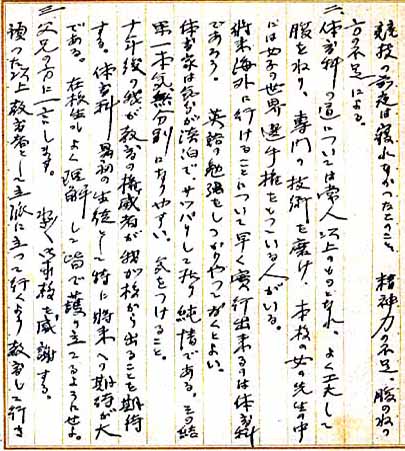 競技の前夜は寝れなかったこと 精神力の不足、腹のねり
方の不足による。
二、体育科の道については常人以上のものとなれ。よく工夫して
腹をねり、専門の技術を磨け、本校の女の先生の中
には女子の世界選手権をもっている人がいる。
将来海外に行けることについて早く実行出来るのは体育科
であろう。英語の勉強をしっかりやっておくとよい。
体育家は気分が淡泊で、サッパリして居り純情である。その結
果一本気、無分別になりやすい。気をつけること。
十年後の我が教育の権威者が我が校から出ることを期待
する。体育科 最初の生徒として特に将来への期待が大
である。在校生もよく理解して皆で護り立てるようにせよ。
三、父兄の方に一言します。 本校を感謝する。
預った以上教育者として立派に立って行くよう教育して行き